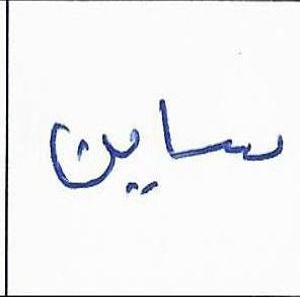 ساين